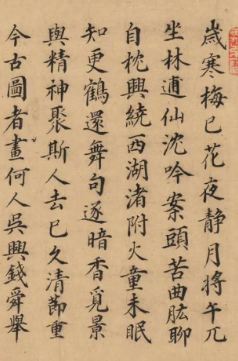 歲寒梅已花夜静月將午兀
坐林逋仙沈吟案頭苦曲肱聊
自枕興繞西湖渚附火童未眠
知更鶴還舞句遂暗香覓景
與精神聚斯人去已久清節重
今古圖者畫何人吳興錢舜舉